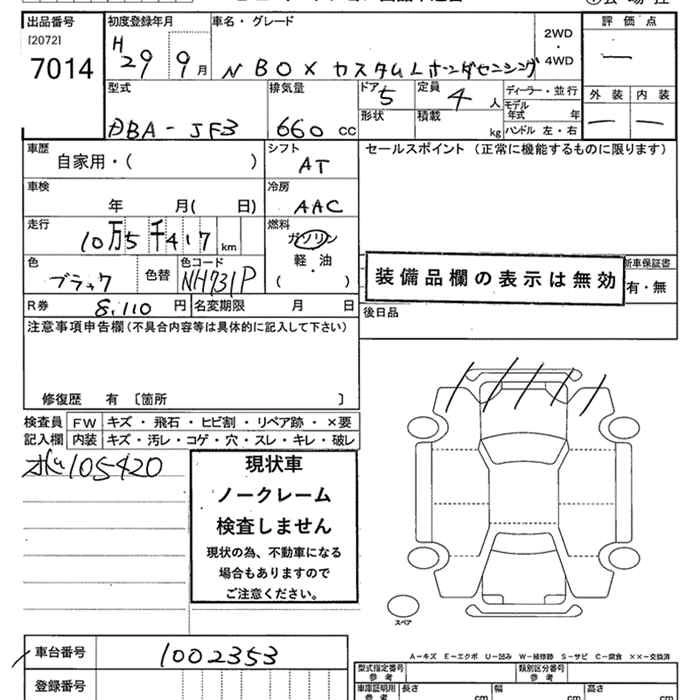 出品番号
[2072]
7014
初度登録年月
H 29 9 月
車名・グレード
N BOX カスタムL ホンダセンシング
2WD
・
4WD
評価点
―
外装 内装
― ―
型式
DBA-JF3
排気量
660 CC
ドア 5
定員 4 人
形状
積載 kg
ディーラー・並行
モデル年式 年
ハンドル 左・右
車歴
自家用・( )
シフト
AT
セールスポイント (正常に機能するものに限ります)
車検
年 月( 日)
冷房
AAC
走行
10万5千417 km
燃料
ガソリン
軽油
・
( )
色
ブラック
色替
色コード
NH731P
装備品欄の表示は無効
新車保証書
有・無
R券 8,110 円
名変期限 月 日
後日品
注意事項申告欄(不具合内容等は具体的に記入して下さい)
修復歴 有 〔箇所 〕
検査員記入欄
FW キズ・飛石・ヒビ割・リペア跡・×要
内装 キズ・汚レ・コゲ・穴・スレ・キレ・破レ
105420
現状車
ノークレーム
検査しません
現状の為、不動車になる
場合もありますので
ご注意ください。
スペア
A-キズ E-エクボ U-凹み W-補修跡 S-サビ C-腐食 ××-交換済
車台番号 1002353
登録番号
型式指定番号 参考
類別区分番号 参考
車庫証明用 参考
長さ cm
幅 cm
高さ cm